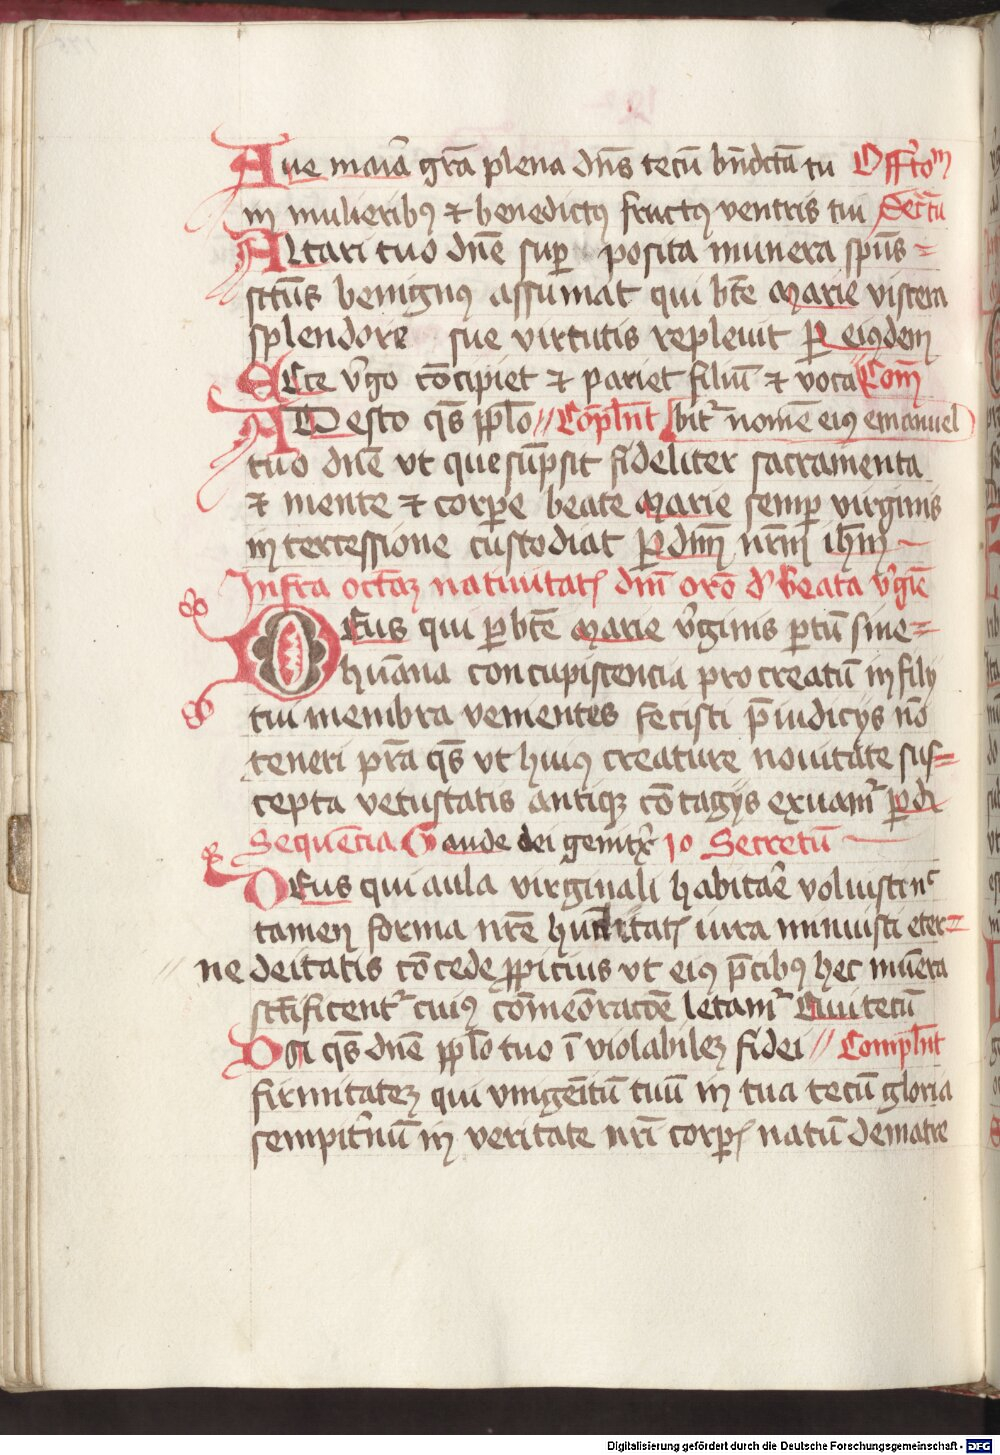 Aue maiā grā plena dn̄s tecū bn̄dctā tu Offr̄toᵐ
in mulieribꝫ ⁊ benedictꝫ fructꝫ ventris tui Secr̄tū
ALtari tuo dn̄e suꝑ posita munera spūs =
sctūs benignꝫ assumat qui bt̄e Marie viscera
splendore sue virtutis repleuit Ꝑ eiꝫdem
ECce v̄go cōcipiet ⁊ pariet filiū ⁊ voca Com̄
ADesto qs̄ pplo // Cōpln̄t bit᷑ nomē eiꝫ emanuel
tuo dn̄e vt que sūpsit fideliter sacramenta
⁊ mente ⁊ corꝑe beate Marie semꝑ virginis
intercessione custodiat Ꝑ dn̄m nr̄m ihm̄
Infra octaꝫ natiuitatꝭ dn̄i orō d' beata v̄gīe
DEus qui ꝑ bt̄e Marie v̄ginis ꝑtū sine =
hūana concupiscencia procreatū in filij
tui membra vementes fecisti p̄iudicijs nō
teneri pr̄a qs̄ vt huiꝫ creature nouitate sus=
cepta vetustatis antiqꝫ cōtagijs exuam᷑ ꝑ d
Sequēcia Gaude dei genitx̄ io Secretū
DEus qui aula virginali habitar̄e voluisti
tamen forma nr̄e hūitatꝭ iura minuisti eter=
ne deitatis cōcede ꝓpicius vt eiꝫ p̄cibꝫ hec mūera
sct̄ificent᷑ cuiꝫ cōmeōracōe letam᷑ Qui tecū
Da qs̄ dn̄e pplo tuo īviolabileꝫ fidei // Compln̄t
firmitateꝫ qui vnigēitū tuū in tua tecū gloria
sempit̄nū in veritate nr̄i corꝑꝭ natū de matre
Digitalisierung gefördert durch die Deutsche Forschungsgemeinschaft - DFG